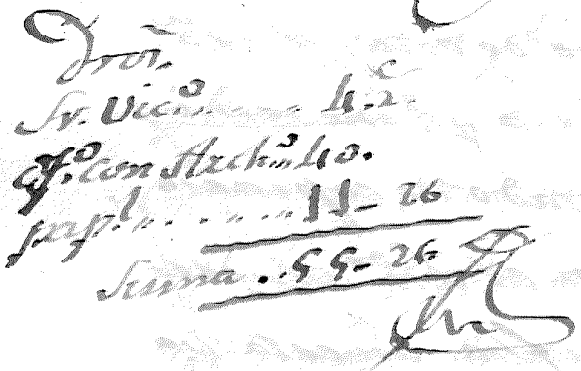 Dros.
Sr. Vico.... 4.
Ofo. con Archo. 40.
papl. . . . . . . . 11_ 26
Suma . . 55_ 26